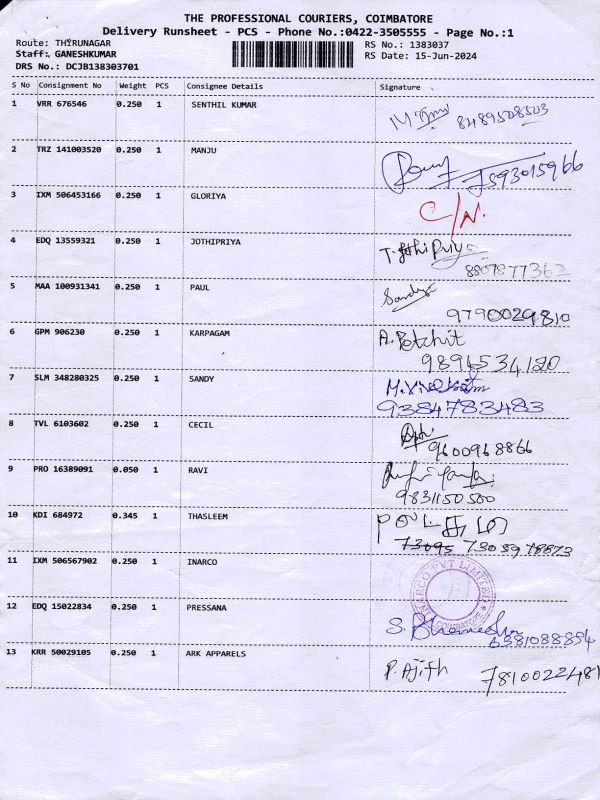 THE PROFESSIONAL COURIERS, COIMBATORE
Delivery Runsheet - PCS - Phone No.:0422-3505555 - Page No.:1
Route: THIRUNAGAR RS No.: 1383037
Staff: GANESHKUMAR RS Date: 15-Jun-2024
DRS No.: DCJB138303701
S No Consignment No Weight PCS Consignee Details Signature
1 VRR 676546 0.250 1 SENTHIL KUMAR
8489508503
2 TRZ 141003520 0.250 1 MANJU
7593015966
3 IXM 506453166 0.250 1 GLORIYA C/N.
4 EDQ 13559321 0.250 1 JOTHIPRIYA T. JothiPriya
8807877362
5 MAA 100931341 0.250 1 PAUL Sandya
9790029810
6 GPM 906230 0.250 1 KARPAGAM A. Petchit
9894534120
7 SLM 348280325 0.250 1 SANDY
9384783483
8 TVL 6103602 0.250 1 CECIL
9600968866
9 PRO 16389091 0.050 1 RAVI
9831150500
10 KDI 684972 0.345 1 THASLEEM
73095 7305978873
11 IXM 506567902 0.250 1 INARCO
INARCO PVT LIMITED
COIMBATORE
12 EDQ 15022834 0.250 1 PRESSANA
6381088894
13 KRR 50029105 0.250 1 ARK APPARELS P. Ajith 7810022481